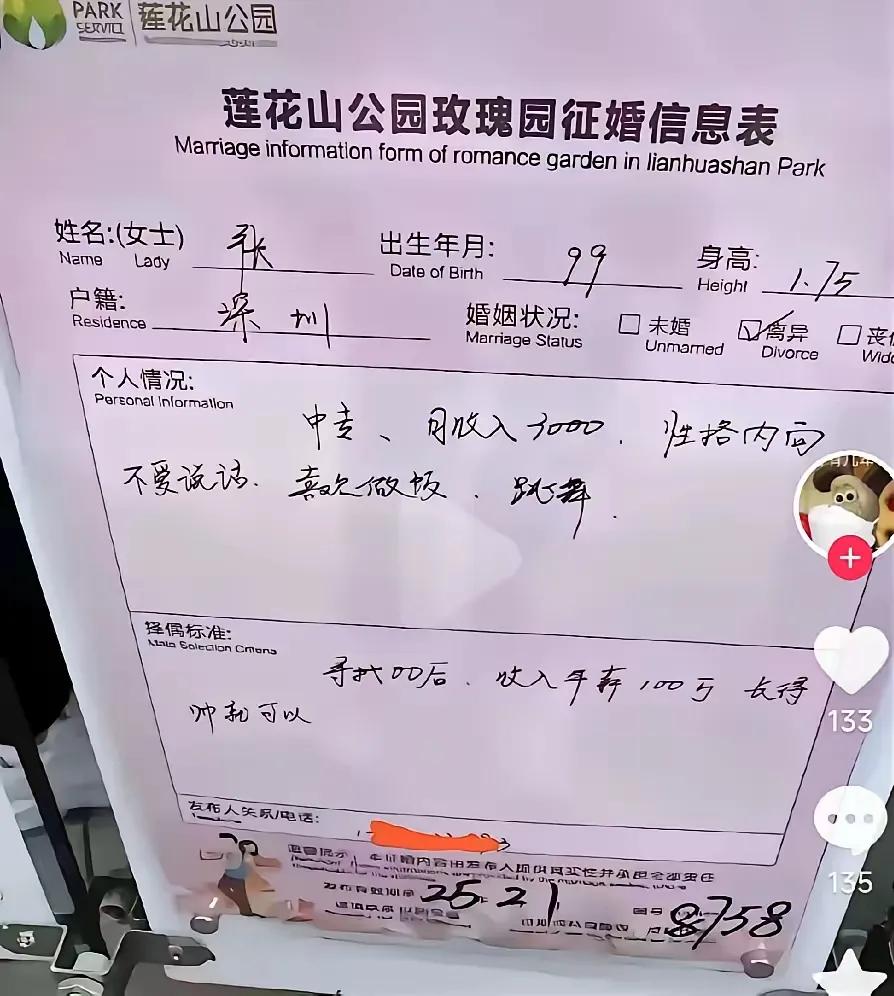 PARK
SERVICE
莲花山公园
莲花山公园玫瑰园征婚信息表
Marriage information form of romance garden in lianhuashan Park
姓名:(女士) 张 出生年月: 99 身高: 1.75
Name Lady Date of Birth Height
户籍: 深圳 婚姻状况: 未婚 离异
Residence Marriage Status Unmarried Divorce
个人情况:
Personal Information
中专、月收入3000.性格内向
不爱说话.喜欢做饭、跳舞.
择偶标准:
Mate Selection Criteria
寻找00后.收入年薪100万 长得
帅就可以
发布人关系/电话:
温馨提示
本征婚内容由发布人提供真实性并承担全部责任
25.2.1
8758
133
135